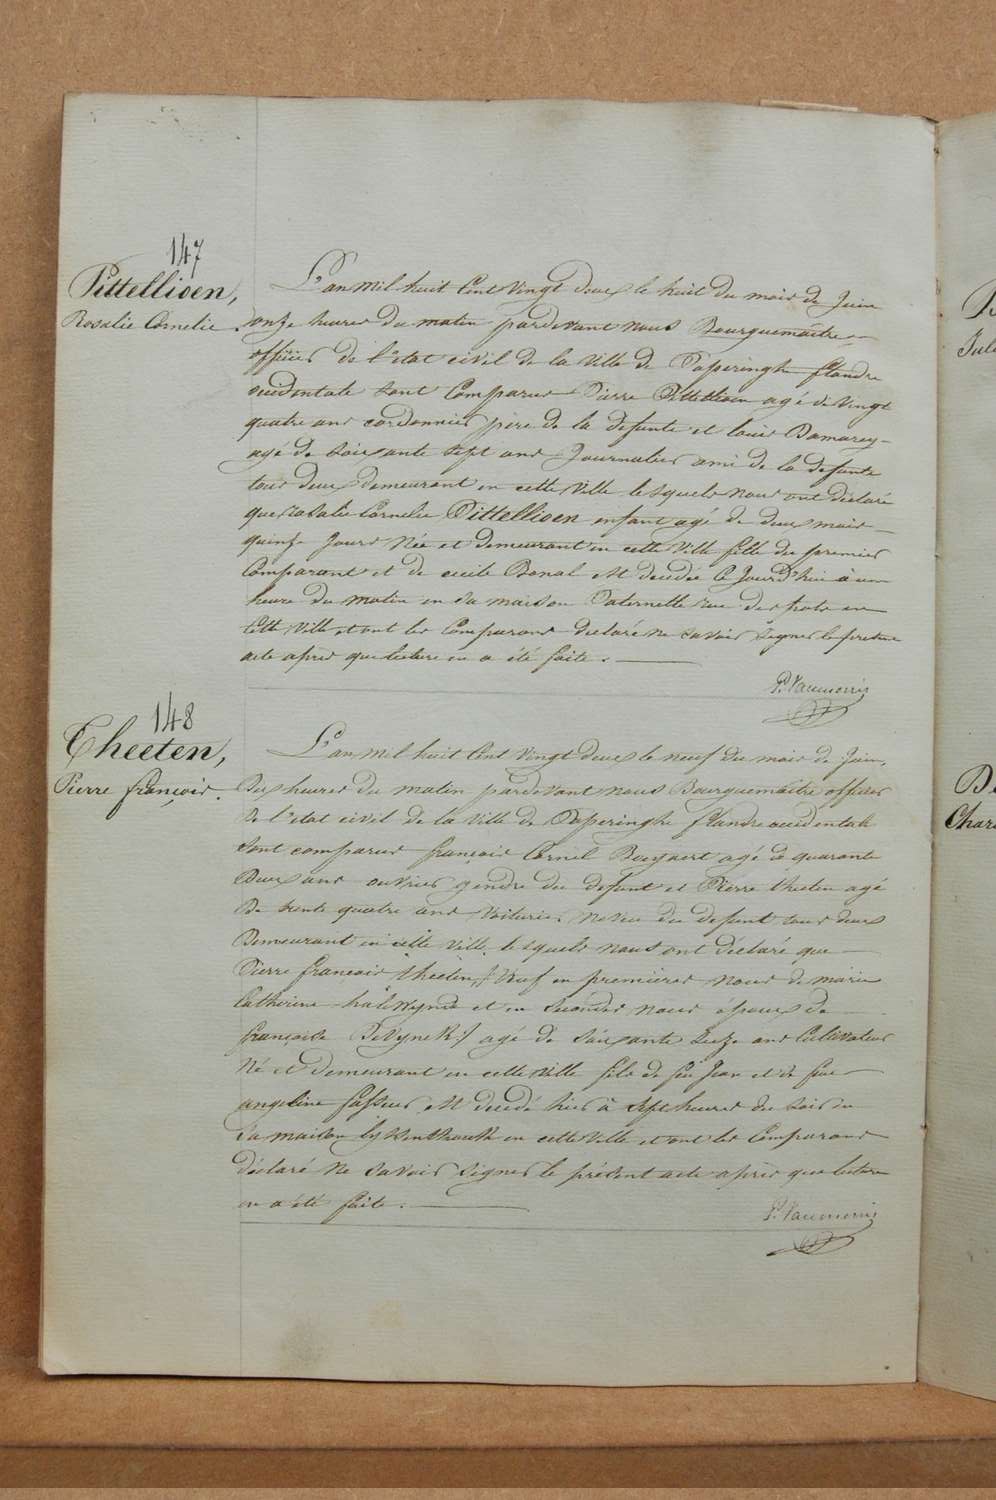 147
Pittellioen,
Rosalie Cornelie.
L'an mil huit Cent Vingt deux le huit du mois de Juin
onze heures du matin pardevant nous Bourguemaitre
officier de l'etat civil de la Ville de Poperinghe flandre
occidentale sont Comparus Pierre Pittellioen agé de Vingt
quatre ans cordonnier père de la defunte et louis Damarey
agé de soixante sept ans Journalier ami de la defunte
tous deux demeurant en cette Ville lesquels nous ont déclaré
que Rosalie Cornelie Pittellioen enfant agé de deux mois
quinze Jours Née et demeurant en cette Ville fille du premier
Comparant et de cecile Benal est decedée ce Jourd'hui à une
heure du matin en sa maison Paternelle rue des pots en
cette Ville et ont les Comparans declaré ne savoir Signer le présent
acte après que lecture en a été faite.
P. Vanmerris
148
Theeten,
Pierre françois.
L'an mil huit Cent Vingt deux le neuf du mois de Juin,
dix heures du matin pardevant nous Bourguemaitre officier
de l'etat civil de la Ville de Poperinghe flandre occidentale
sont comparus françois Cornil Bogaert agé de quarante
Deux ans ouvrier gendre du defunt et Pierre theeten agé
de trente quatre ans Voiturier neveu du defunt tous deux
Demeurant en cette Ville lesquels nous ont déclaré que
Pierre françois theeten, Veuf en premières noces de marie
Catherine et en secondes noces époux de
françoise Devynck :/ agé de soixante seize ans Cultivateur
Né et demeurant en cette Ville fils de feu Jean et de feue
angeline est decedé hier à sept heures du soir en
sa maison en cette Ville et ont les Comparans
déclaré ne savoir Signer le présent acte après que lecture
en a été faite.
P. Vanmerris